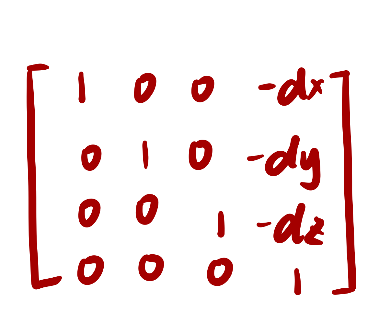 1 0 0 -dx
0 1 0 -dy
0 0 1 -dz
0 0 0 1